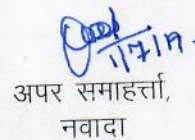 1/7/19.
अपर समाहर्त्ता,
नवादा